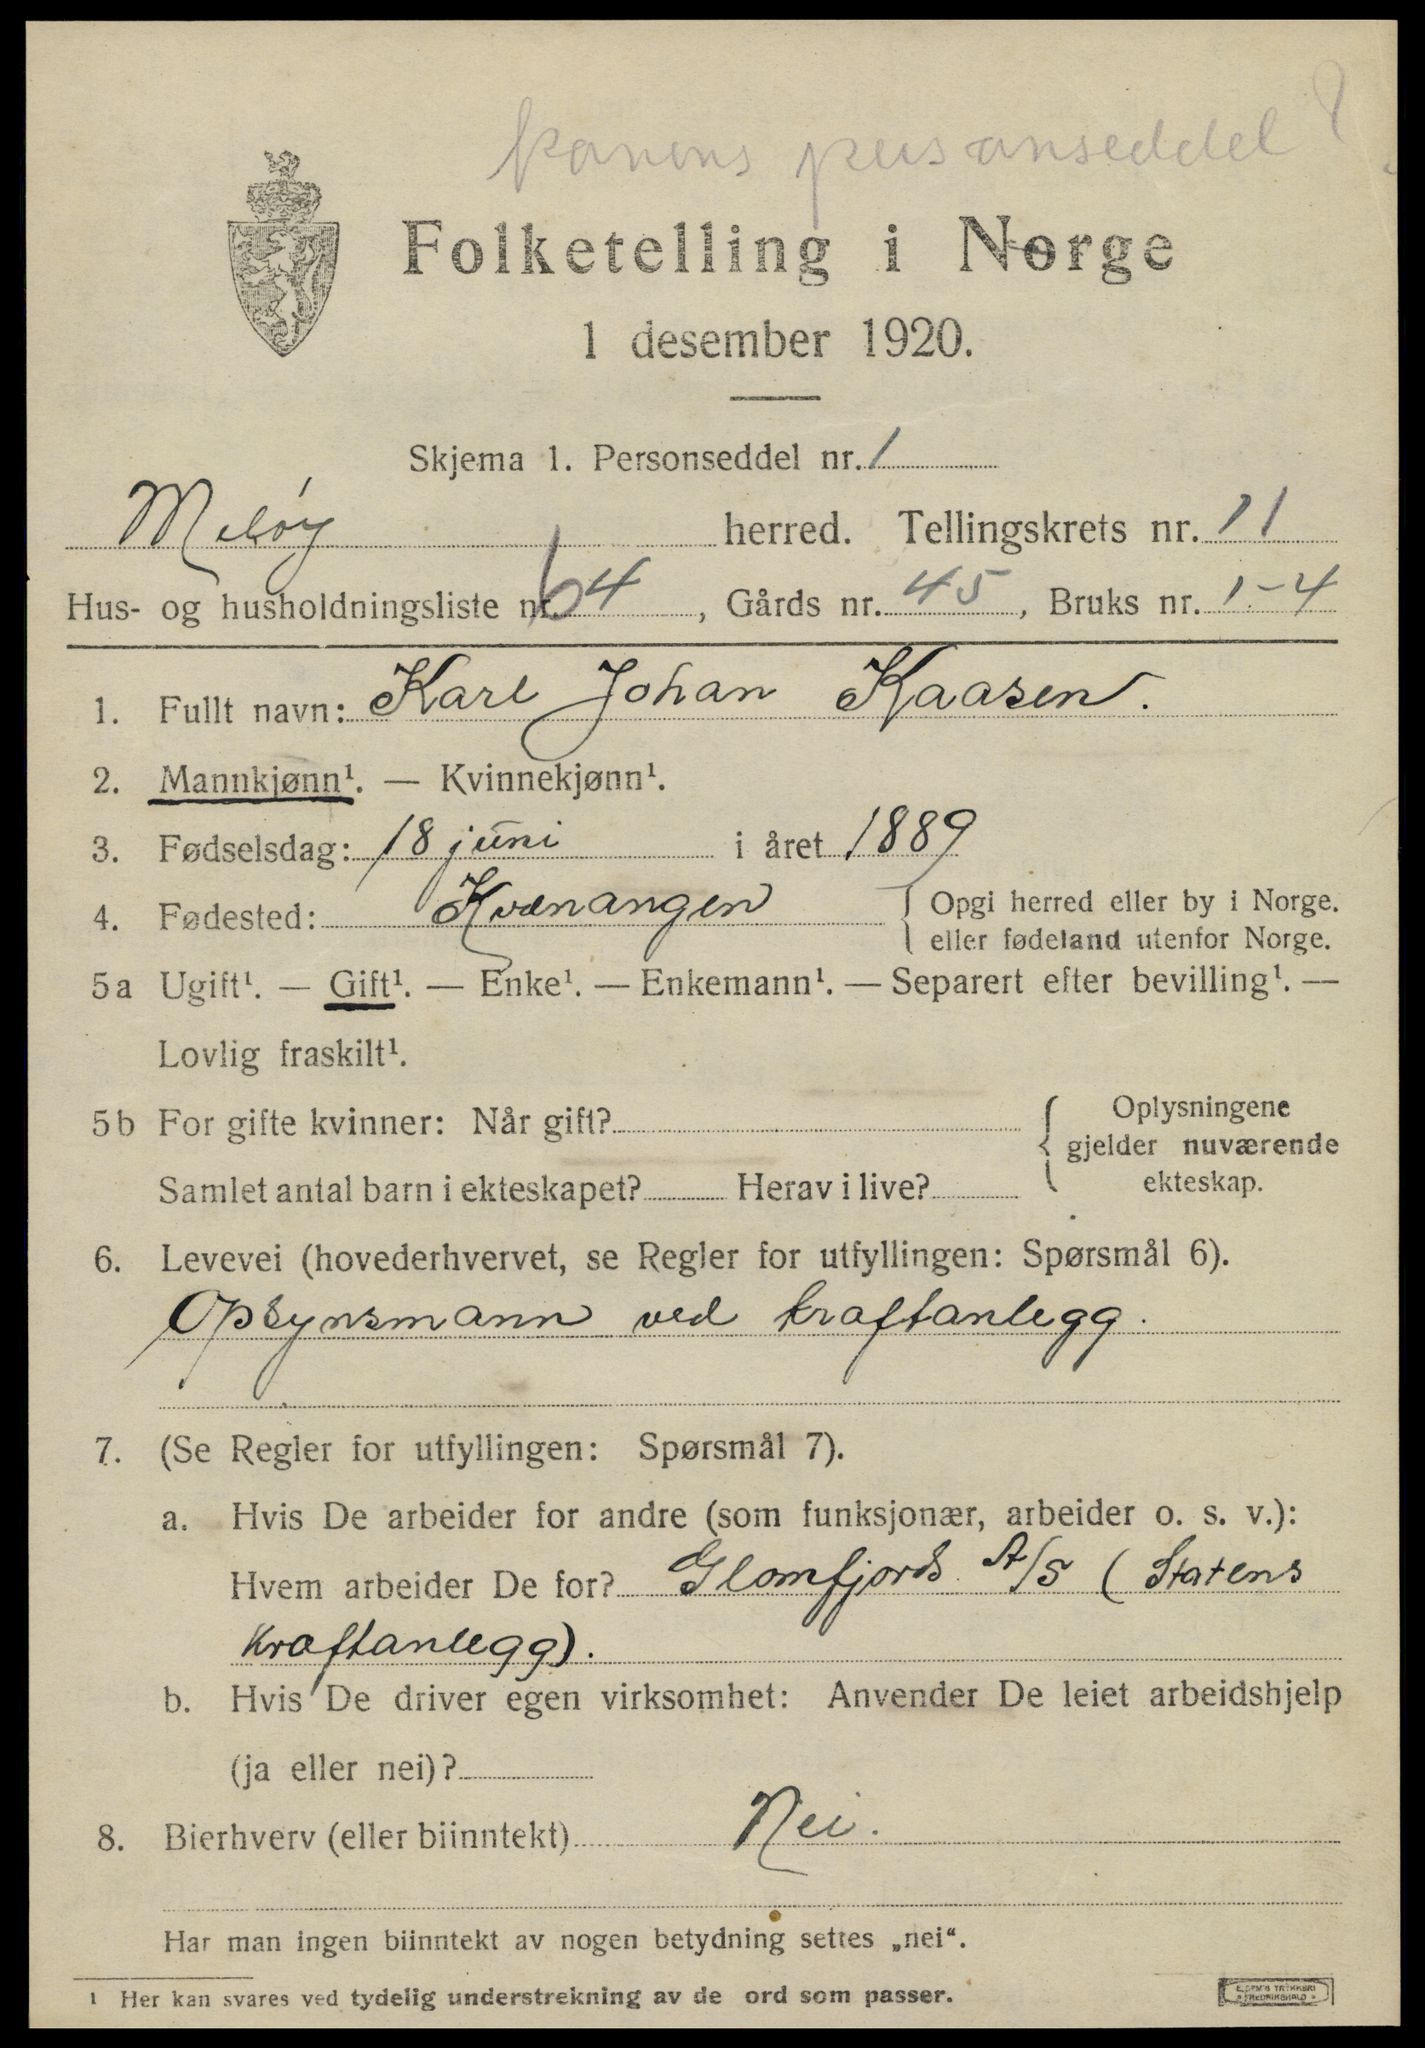 konens personseddel ?
Folketelling i Norge
1 desember 1920.
Skjema 1. Personseddel nr. 1
Meløy herred. Tellingskrets nr. 11
Hus- og husholdningsliste nr. 64, Gårds nr. 45, Bruks nr. 1-4
1. Fullt navn: Karl Johan Kaasen.
2. Mannkjønn¹. — Kvinnekjønn¹.
3. Fødselsdag: 18 juni i året 1889
4. Fødested: Kvænangen { Opgi herred eller by i Norge.
eller fødeland utenfor Norge.
5a Ugift¹. — Gift¹. — Enke¹. — Enkemann¹. — Separert efter bevilling¹. —
Lovlig fraskilt¹.
5b For gifte kvinner: Når gift? { Oplysningene
gjelder nuværende
Samlet antal barn i ekteskapet? Herav i live? ekteskap.
6. Levevei (hovederhvervet, se Regler for utfyllingen: Spørsmål 6).
Opsynsmann ved kraftanlegg.
7. (Se Regler for utfyllingen: Spørsmål 7).
a. Hvis De arbeider for andre (som funksjonær, arbeider o. s. v.):
Hvem arbeider De for? Glomfjords A/S (Statens
kraftanlegg).
b. Hvis De driver egen virksomhet: Anvender De leiet arbeidshjelp
(ja eller nei)?
8. Bierhverv (eller biinntekt) Nei.
Har man ingen biinntekt av nogen betydning settes „nei“.
¹ Her kan svares ved tydelig understrekning av de ord som passer.